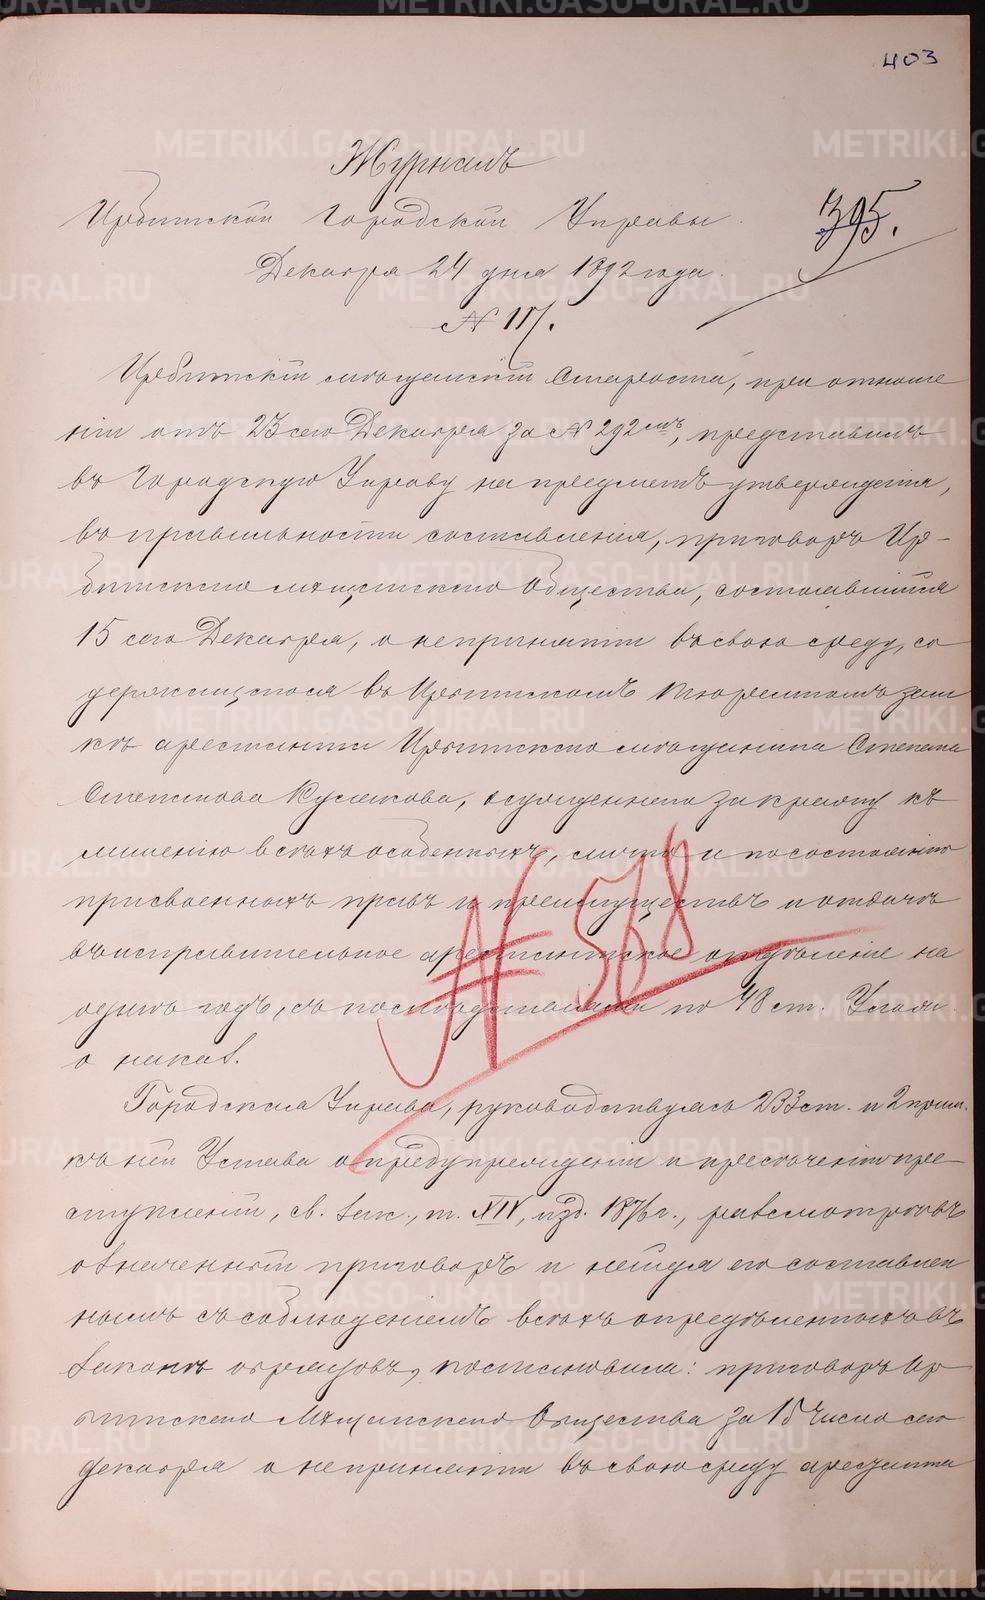 403
Журналъ
Ирбитской Городской Управы
395.
Декабря 24 дня 1892 года
№ 117.
Ирбитскій мѣщанскій Староста, при отноше
ніи отъ 23 сего Декабря за № 292мъ, представилъ
въ Городскую Управу на предметъ утвержденія,
въ правильности составленія, приговоръ Ир-
битскаго мѣщанскаго Общества, состоявшійся
15 сего Декабря, о непринятіи въ свою среду, со
держащагося въ Ирбитскомъ тюремномъ зам
кѣ арестанта Ирбитскаго мѣщанина Степана
Степанова Кулакова, осужденнаго за кражу къ
лишенію всѣхъ особенныхъ, лично и по состоянію
присвоенныхъ правъ и преимуществъ и отдачѣ
въ исправительное арестантское отдѣленіе на
одинъ годъ, съ послѣдствіями по 48 ст. Улож.
о наказ.
№ 568
Городская Управа, руководствуясь 233 ст. и 2 прим.
къ ней Устава о предупрежденіи и пресѣченіи пре
ступленій, св. зак., т. XIV, изд. 1876 г., разсмотрѣвъ
означенный приговоръ и найдя его составлен
нымъ съ соблюденіемъ всѣхъ опредѣленныхъ въ
законѣ обрядовъ, постановила: приговоръ Ир
битскаго Мѣщанскаго Общества за 15 число сего
декабря о непринятіи въ свою среду арестанта
METRIKI.GASO-URAL.RU